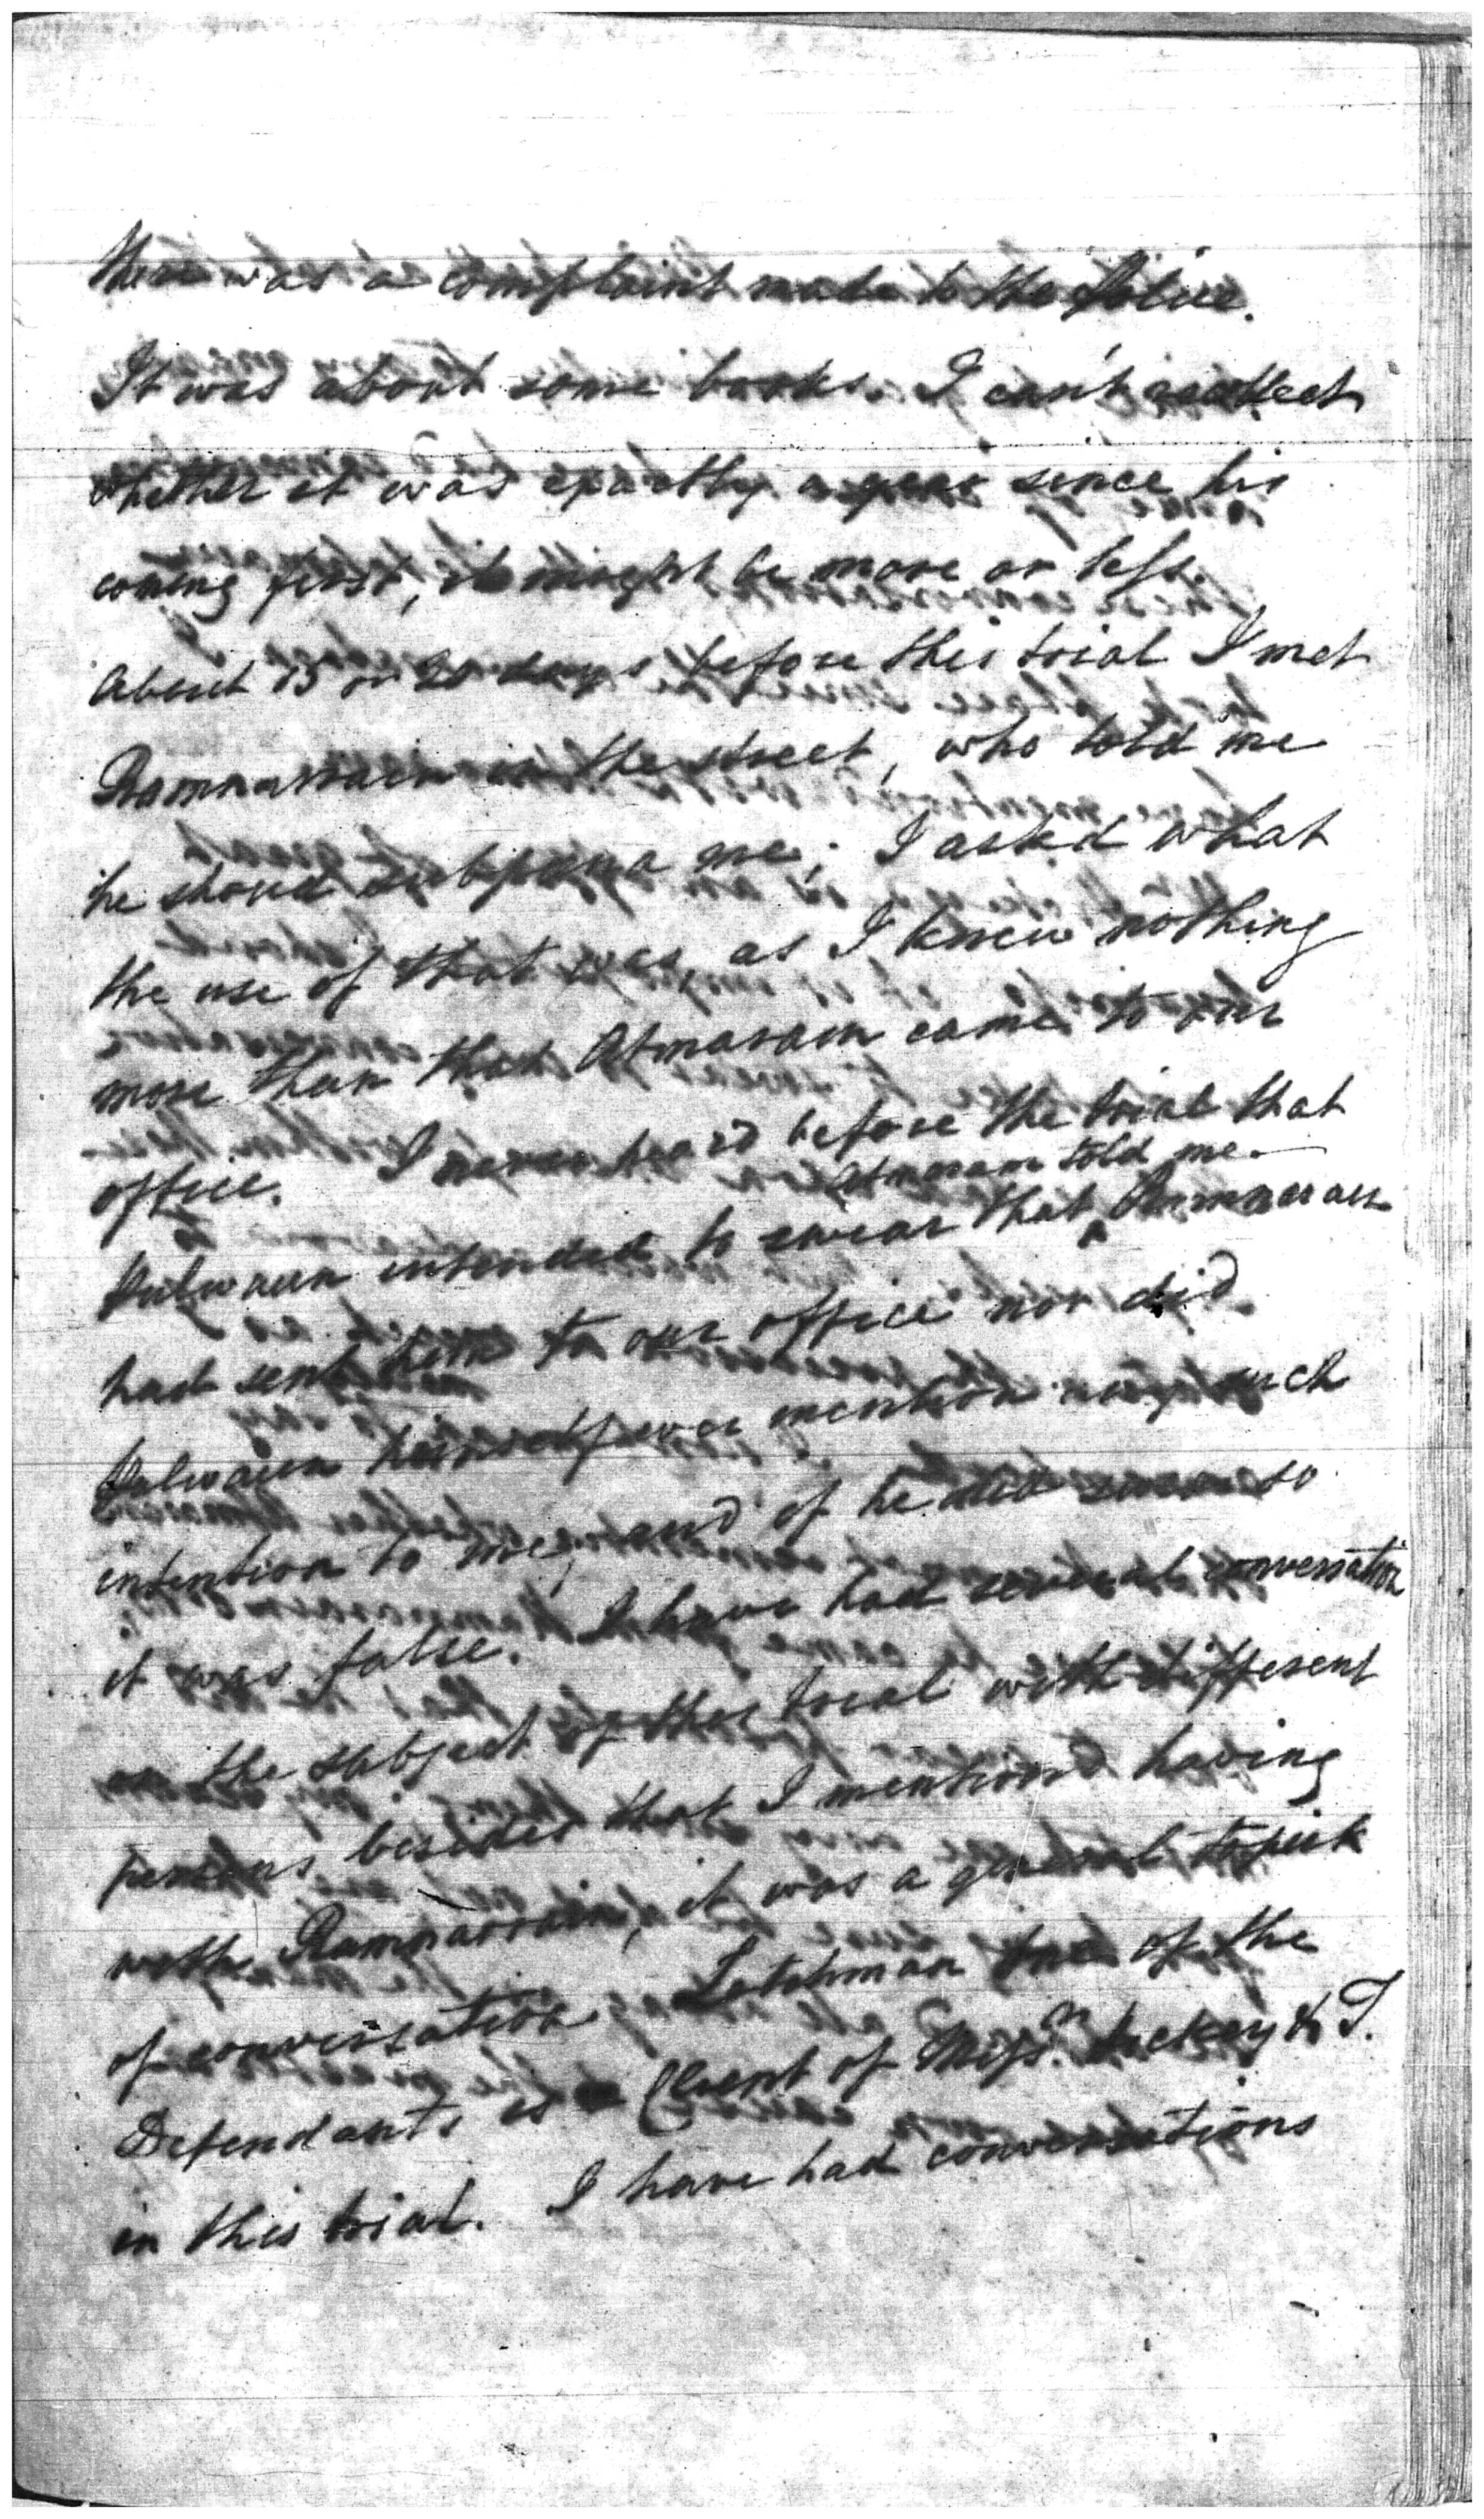 there was a complaint made to the Police.
It was about some books. I can't recollect
whether it was exactly a year since his
coming first, it might be more or less.
About 15 or 20 days before this trial I met
Ramnarrain in the street, who told me
he should subpœna me; I asked what
the use of that was, as I knew nothing
more than that Atmaram came to our
office. I never heard before the trial that
Atmaram told me
intended to swear that ^
had sent him to our office nor did
himself ever mention any such
intention to me, and if he did swear so
it was false. I have had several conversation
on the subject of this trial with different
persons besides that I mentioned having
with Ramnarrain, it was a general topick
of conversation. Letchman one of the
Defendants is a Client of Messrs. Hickey & T.
in this trial. I have had conversations